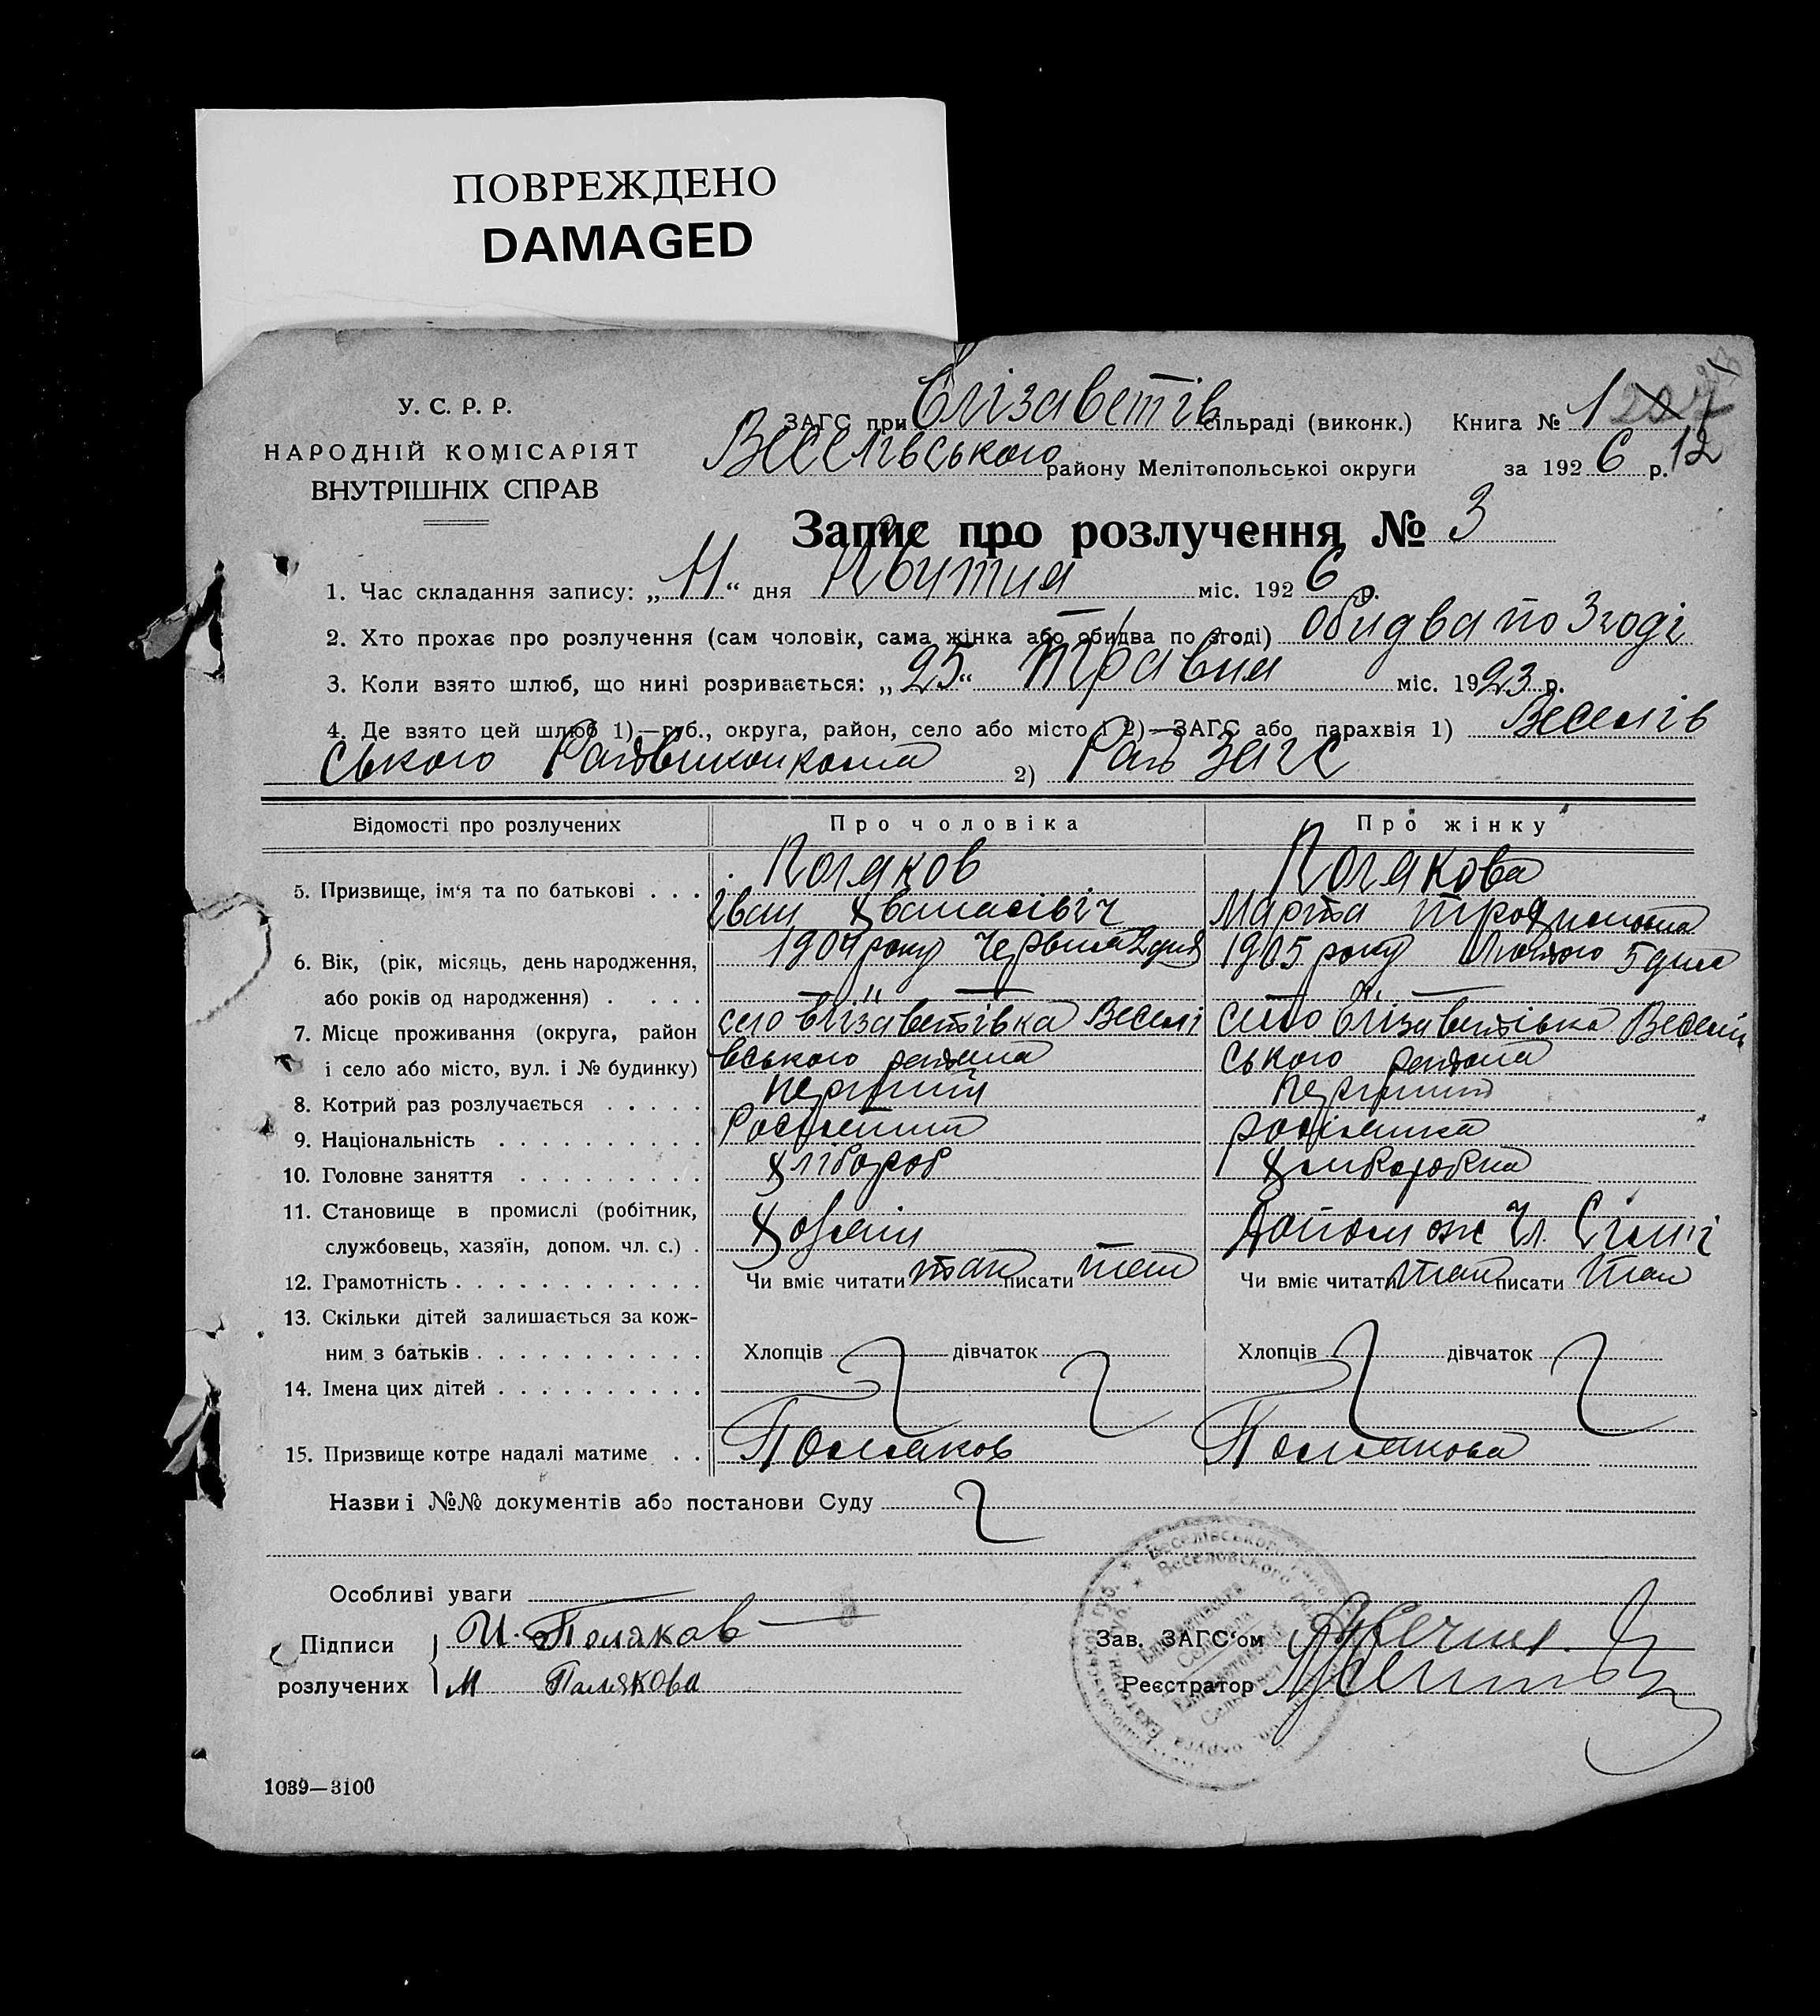 ПОВРЕЖДЕНО
DAMAGED
У. С. Р. Р.
НАРОДНІЙ КОМІСАРІЯТ
ВНУТРІШНІХ СПРАВ
ЗАГС при Єлізаветів сільраді (виконк.) Книга № 1
Веселівського району Мелітопольської округи за 1926 р. 12
Запис про розлучення № 3
1. Час складання запису: „11“ дня Квитня міс. 1926 р.
2. Хто прохає про розлучення (сам чоловік, сама жінка або обидва по згоді) обидва по Згоді
3. Коли взято шлюб, що нині розривається: „25“ травня міс. 1923 р.
4. Де взято цей шлюб 1)—губ., округа, район, село або місто і 2)—ЗАГС або парахвія 1) Веселів
ського Райвиконкома 2) Рай Загс
Відомості про розлучених Про чоловіка Про жінку
5. Призвище, ім‘я та по батькові . . . Поляков Полякова
Іван Хванасівіч Марта
6. Вік, (рік, місяць, день народження, 1904 року червня 2 дня 1905 року Лютого 5 дня
або років од народження) . . . .
7. Місце проживання (округа, район село Єлізаветівка Веселі село Єлізаветівка Веселів
і село або місто, вул. і № будинку) вського района ського района
8. Котрий раз розлучається . . . . . перший перший
9. Національність . . . . . . . . . . росіянка
10. Головне заняття . . . . . . . . . хлібороб хліборобка
11. Становище в промислі (робітник,
службовець, хазяїн, допом. чл. с.) . Хозяін Допомож чл. Сімі
12. Грамотність . . . . . . . . . . . . Чи вміє читати так писати так Чи вміє читати так писати так
13. Скільки дітей залишається за кож-
ним з батьків . . . . . . . . . . . Хлопців дівчаток Хлопців дівчаток
14. Імена цих дітей . . . . . . . . . .
15. Призвище котре надалі матиме . . Поляков Полякова
Назви і №№ документів або постанови Суду
Особливі уваги
Підписи И. Поляков Зав. ЗАГС‘ом
розлучених М Полякова Реєстратор
1039—3100